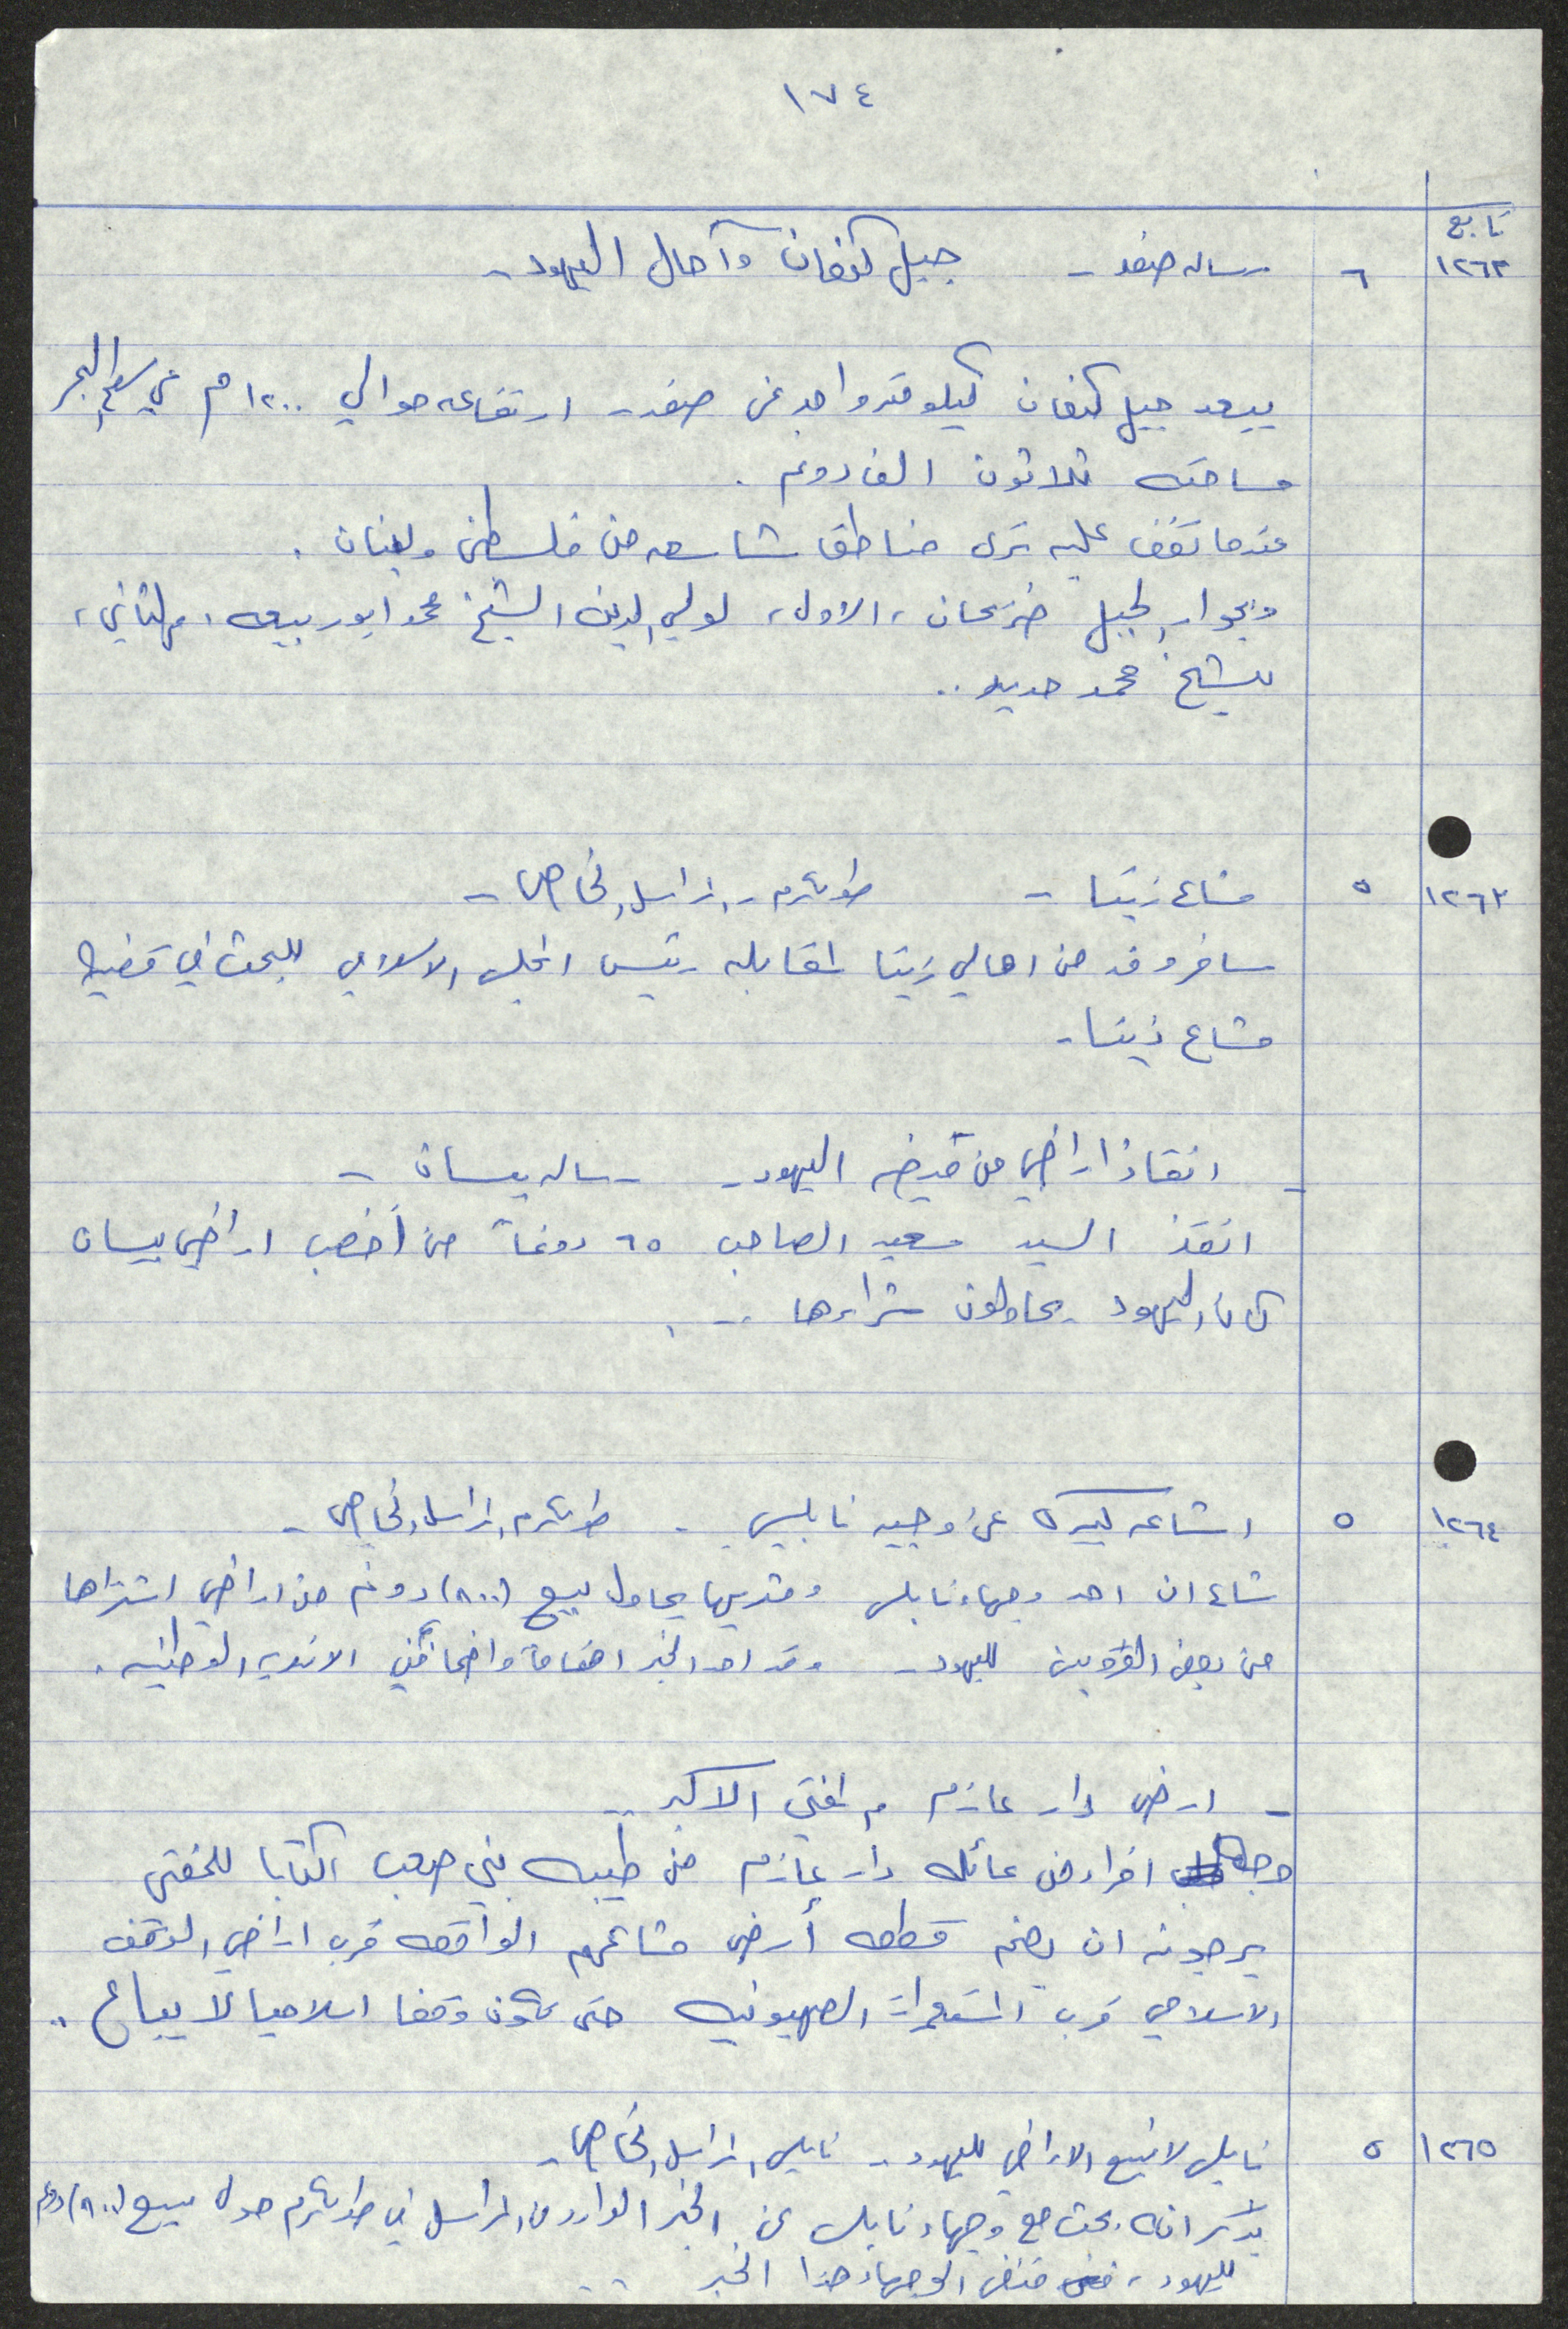 ١٧٤
تابع
١٢٦٢ ٦ رساله صفد - جبل كنعان وآمال اليهود -
يبعد جبل كنعان كيلو متر واحد عن صفد - ارتفاعه حوالي ١٢٠٠ م عن سطح البحر
مساحته ثلاثون الف دونم .
عندما تقف عليه ترى مناطق شاسعه من فلسطين ولبنان .
وبجوار الجبل ضريحان ، الاول ، لولي الدين الشيخ محمد ابو ربيعه ، والثاني ،
للشيخ محمد حديد ..
١٢٦٣ ٥ مشاع زيتا - طولكرم - المراسل الخاص -
سافر وفد من اهالي زيتا لمقابله رئيس المجلس الاسلامي للبحث في قضيه
مشاع زيتا -
- انقاذ اراضي من قبضه اليهود - رساله بيسان -
انقذ السيد سعيد الصاحب ٦٥ دونماً من أخصب اراضي بيسان
كان اليهود يحاولون شراءها ..
١٢٦٤ ٥ اشاعه كبيره عن وجيه نابلسي - طولكرم المراسل الخاص -
شاع ان احد وجهاء نابلس ومثريها يحاول بيع (٨٠٠) دونم من اراضي اشتراها
من بعض القرويين لليهود - وقد احد الخبر اهتماماً واضحا في الانديه الوطنيه .
- ارض دار عازم والمفتي الاكبر ..
وجه افراد من عائله دار عازم من طيبه بني صعب كتابا للمفتي
يرجونه ان يضم قطعه أرض مشاعهم الواقعه قرب اراضي الوقف
الاسلامي قرب المستعمرات الصهيونيه حتى تكون وقفا اسلاميا لا يباع ..
١٢٦٥ ٥ نابلس لا تبيع الاراضي لليهود - نابلس المراسل الخاص -
يذكر انه بحث مع وجهاء نابلس عن الخبر الوارد من المراسل في طولكرم حول بيع (٨٠٠) دونم
لليهود ، فنفى الوجهاء هذا الخبر ..